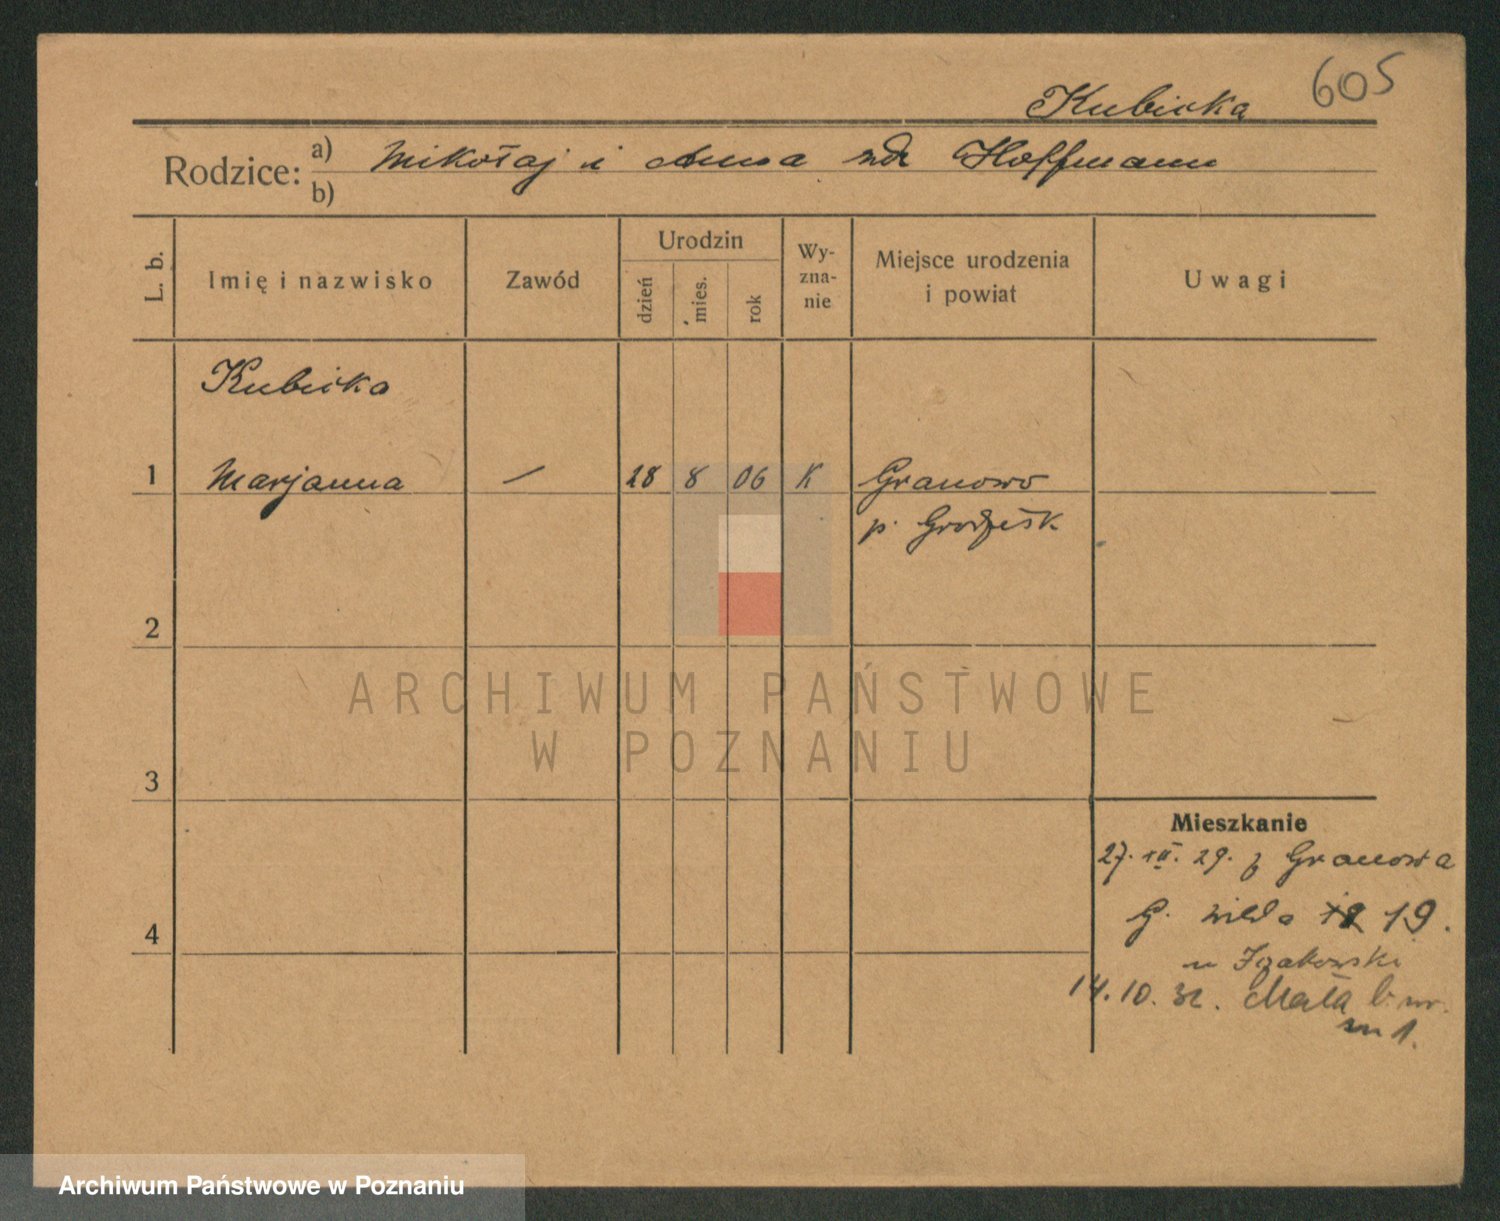 605
Kubicka
Rodzice: a) Mikołaj i Anna zd. Hoffmann
b)
L. b. Imię i nazwisko Zawód Urodzin dzień mies. rok Wy-zna-nie Miejsce urodzenia i powiat Uwagi
Kubicka
1 Marjanna — 28 8 06 K Granowo
p. Grodzisk
2
3
Mieszkanie
27. III. 29. z Granowa
G. Wilda 19.
4
14.10.32. Mała
m 1.
ARCHIWUM PAŃSTWOWE
W POZNANIU
Archiwum Państwowe w Poznaniu